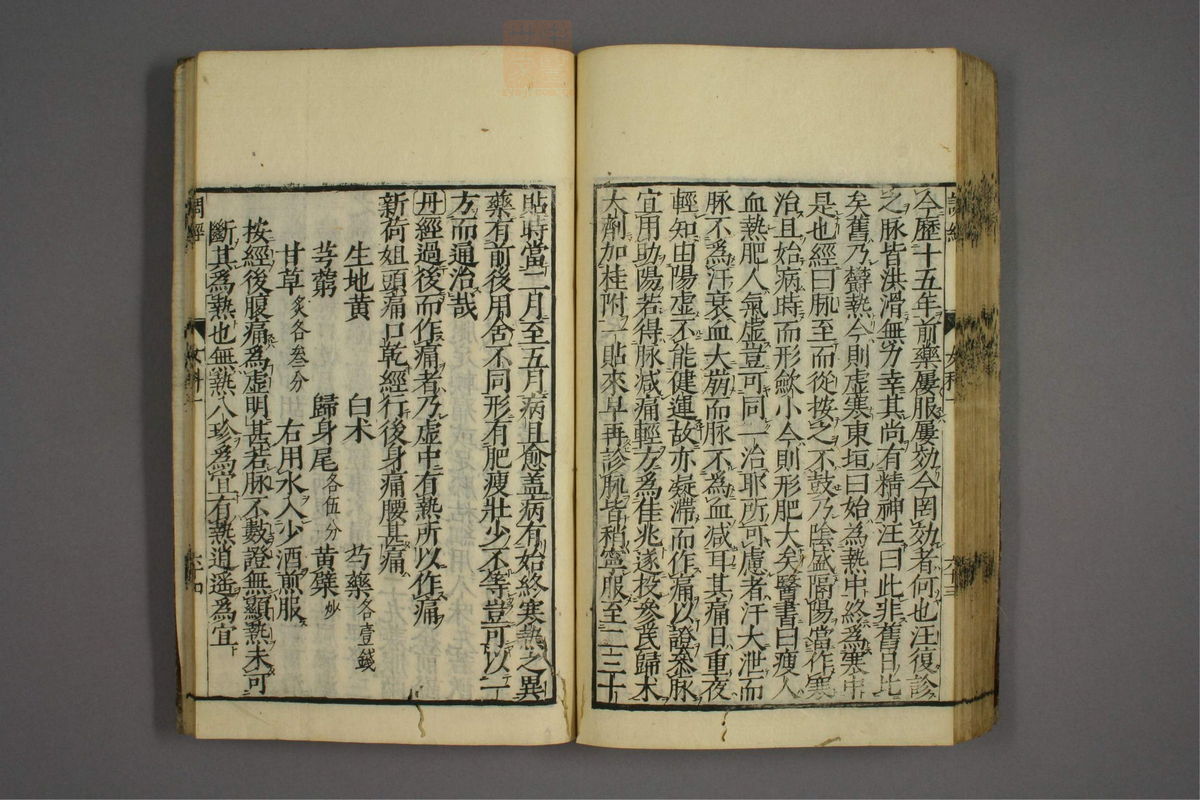 今歷十五年前藥屢服屢効今罔効者何也汪復診
之脉皆洪滑無力幸其尚有精神汪曰此非舊日比
矣舊乃欝熱今則虚寒東垣曰始為熱中終為寒中
是也經曰脉至而從按之不鼓乃陰盛隔陽當作寒
治且始病時而形歛小今則形肥大矣醫書曰瘦人
血熱肥人氣虚豈可同一治耶所可慮者汗大泄而
脉不為汗衰血大崩而脉不為血减耳其痛日重夜
輕知由陽虚不能健運故亦凝滯而作痛以證叅脉
宜用助陽若得脉减痛輕方為佳兆遂投參芪歸术
大劑加桂附一貼來早再診脉皆稍寧服至二三十
女科一
六十三
貼時當二月至五月病且愈盖病有始終寒熱之異
藥有前後用舍不同形有肥瘦壯少不等豈可以一
方而通治哉
丹經過後而作痛者乃虚中有熱所以作痛
新荷姐頭痛口乾經行後身痛腰甚痛
生地黄 白术 芍藥各壹錢
芎藭 歸身尾各伍分 黄蘗炒
甘草炙各叁分 右用水入少酒煎服
按經後腹痛為虚明甚若脉不數證無顯熱未可
斷其為熱也無熱八珍為宜有熱逍遥為宜
調經
女科一
六十四